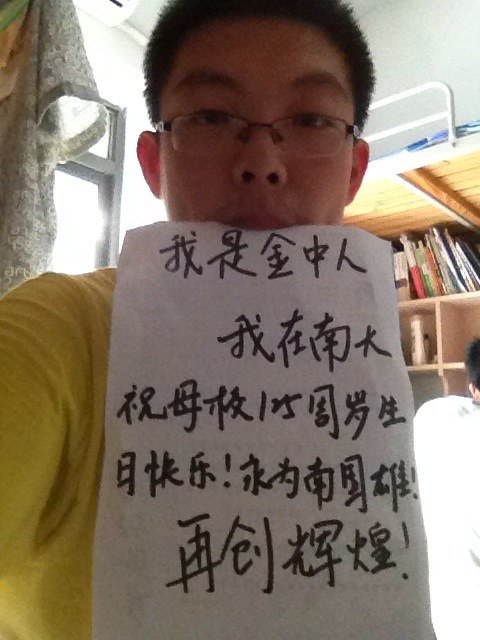 我是金中人
我在南大
祝母校125周岁生
日快乐！永为南国雄！
再创辉煌！